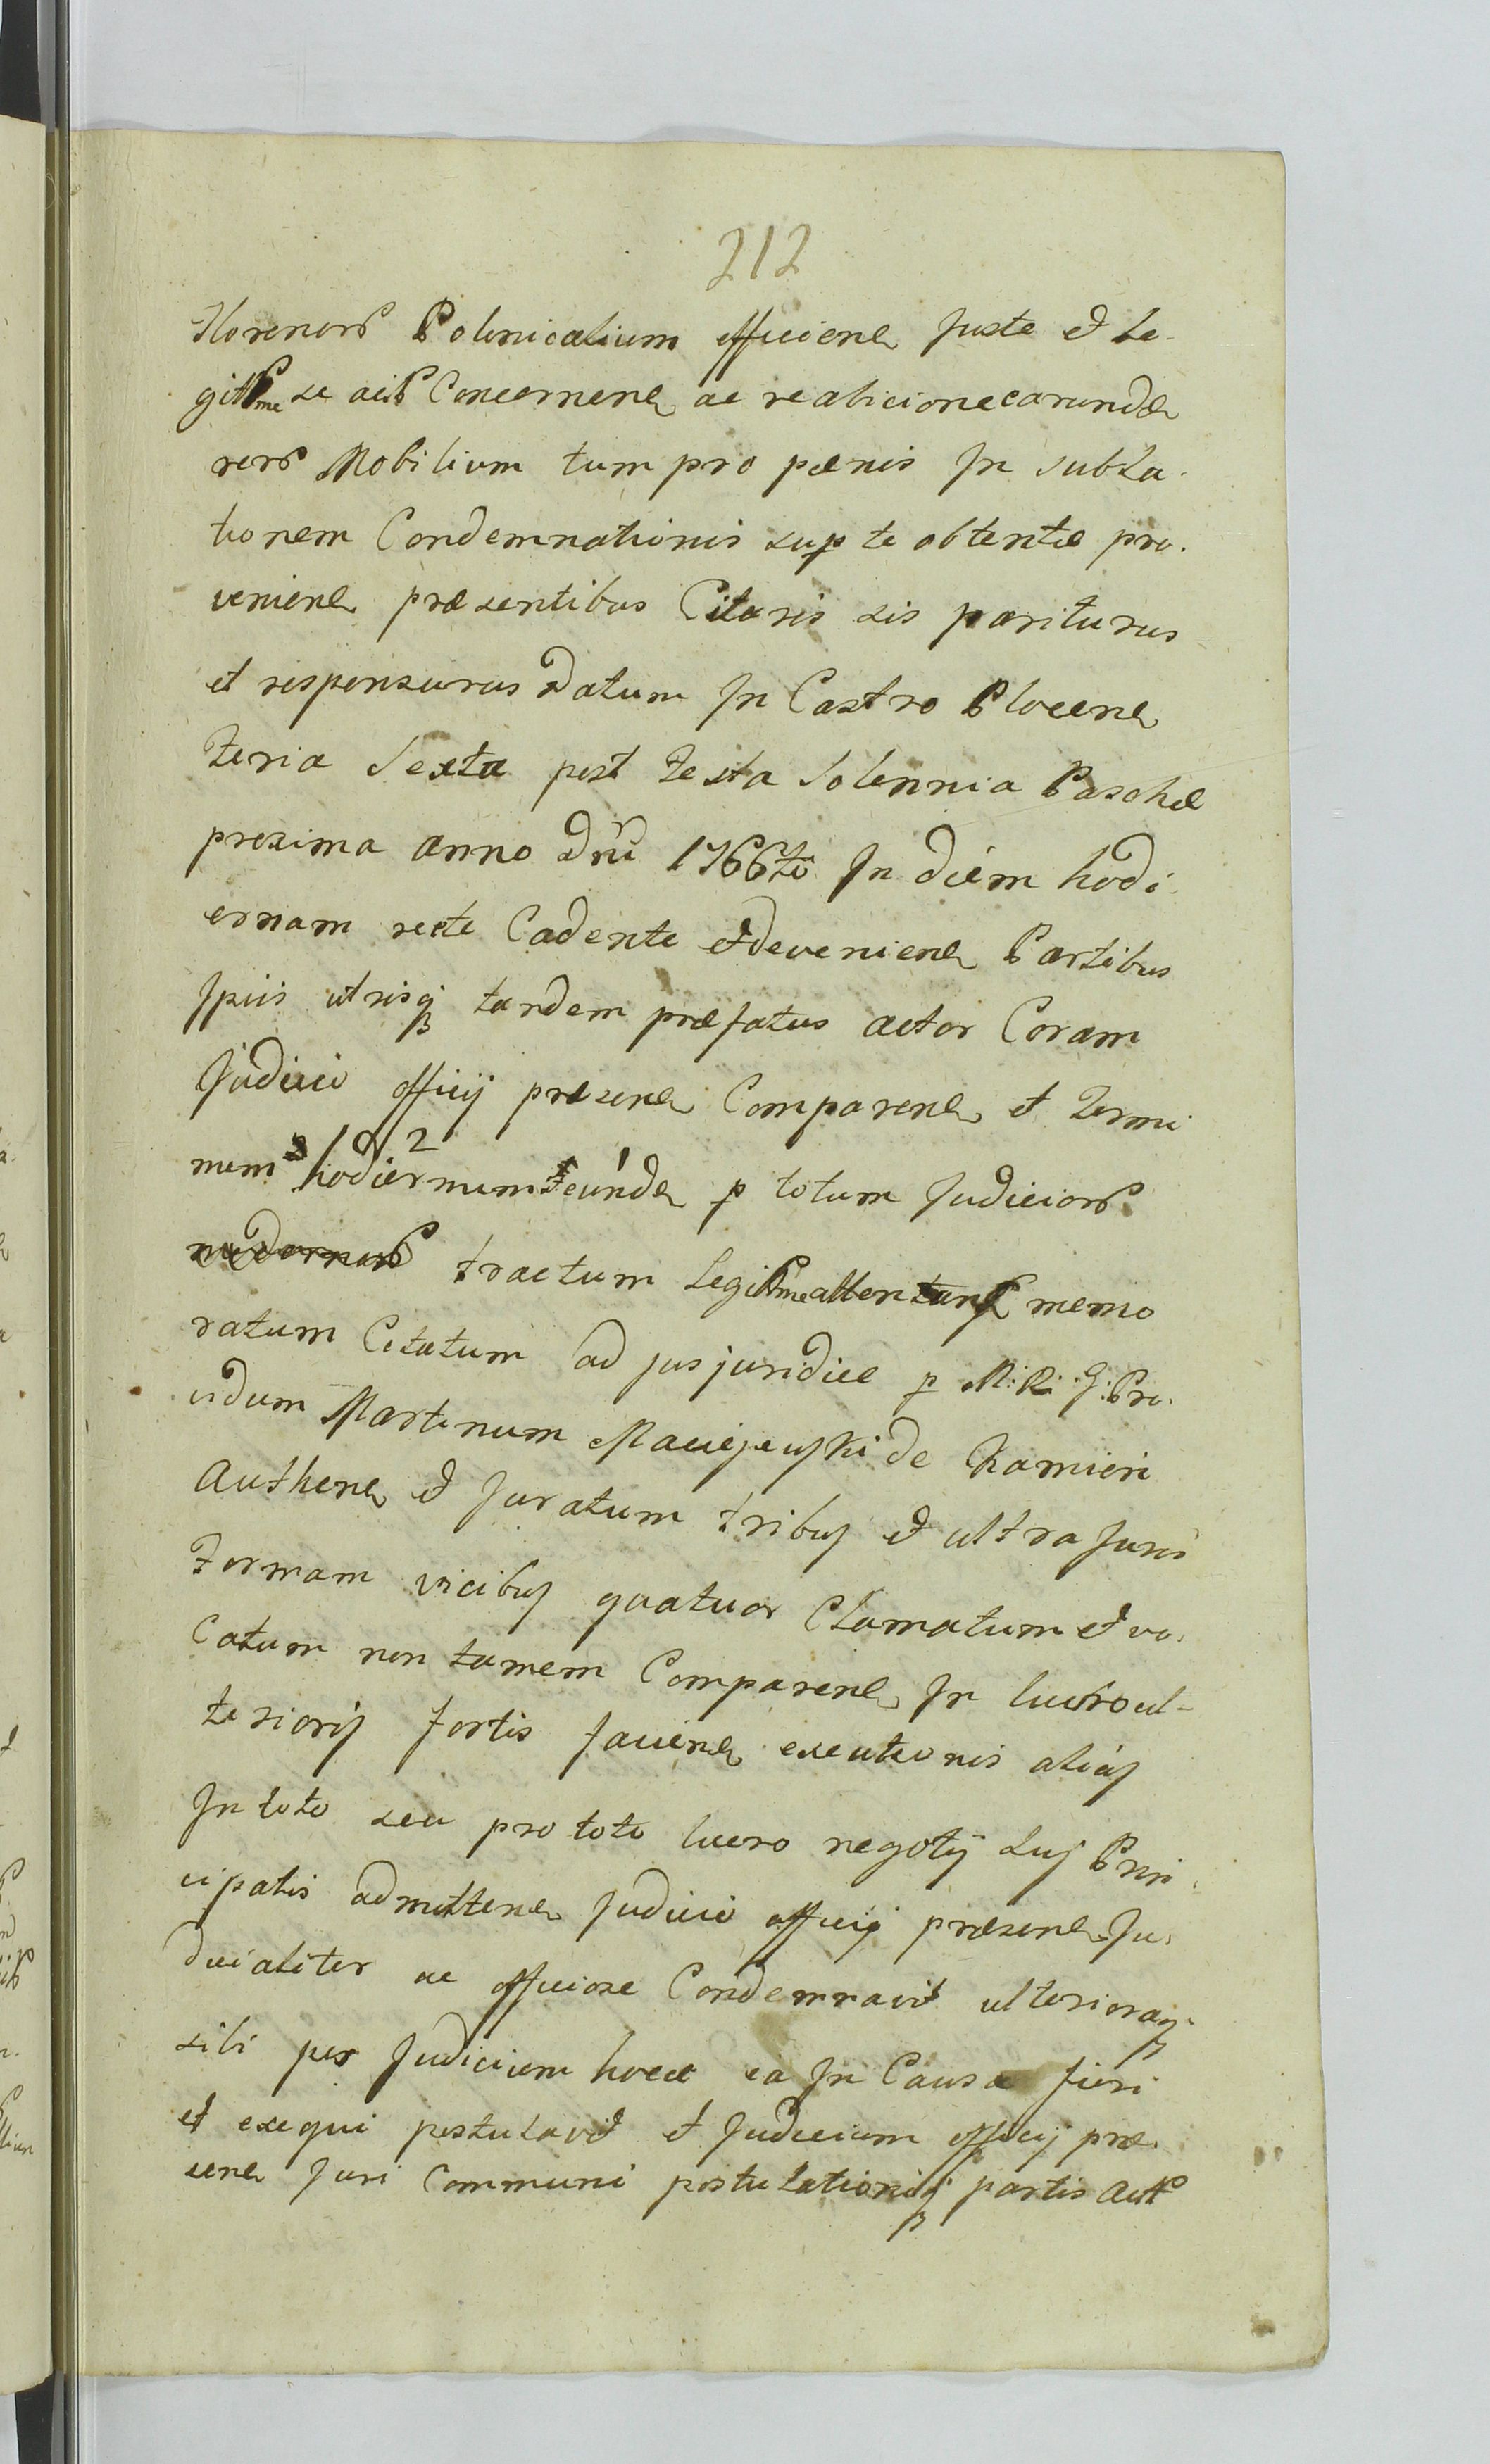 212
Florenor Polonicalium efficien juste et Le-
gitme se acto Concernen ac realicione earunde
rer Mobilium tum pro pœnis In subla-
tionem Condemnationis sup te obtentæ pro-
venien præsentibus Citaris sis pariturus
et responsurus Datum In Castro Plocen
Feria Sexta post Festa Solennia Paschæ
proxima anno Dni 1766to In diem hodi-
ernam recte Cadente et devenien Partibus
Ipiis utrisq tandem præfatus actor Coram
Judicio officij præsen Comparen et Termi
num hodiernum Feunde p totum Judicior
tractum Legitme attentans memo
ratum Citatum ad jus juridice p M: R: G: Pro-
vidum Martinum Maciejewski de Kamien
Authen et Juratum tribus et ultra Juris
Formam vicibus quatuor Clamatum et vo-
catum non tamem Comparen In lucro ul-
terioris fortis facien executionis alias
In toto seu pro toto lucro negotij sui Prin-
cipalis admitten Judicio officij præsen Ju-
dicialiter ac officiose Condemnavit ulterioraq
sibi per Judicium hocce ea In Causa fieri
et exequi postulavit et Judicium officij præ-
sen Juri Communi postulationiq partis Act